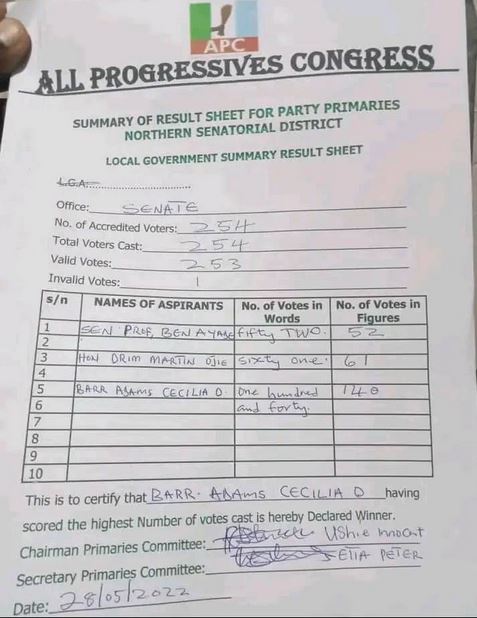 APC
ALL PROGRESSIVES CONGRESS
SUMMARY OF RESULT SHEET FOR PARTY PRIMARIES
NORTHERN SENATORIAL DISTRICT
LOCAL GOVERNMENT SUMMARY RESULT SHEET
L.G.A:..............................
Office: SENATE
No. of Accredited Voters: 254
Total Voters Cast: 254
Valid Votes: 253
Invalid Votes: 1
s/n NAMES OF ASPIRANTS No. of Votes in Words No. of Votes in Figures
1 SEN PROF, BEN AYADE fifty TWO. 52
2
3 HON ORIM MARTIN OJIE sixty one. 61
4
5 BARR ADAMS CECILIA O. One hundred 140
6 and forty.
7
8
9
10
This is to certify that BARR. ADAMS CECILIA O having
scored the highest Number of votes cast is hereby Declared Winner.
Chairman Primaries Committee: Ushie Innocent
Secretary Primaries Committee: ETTA PETER
Date: 28/05/2022